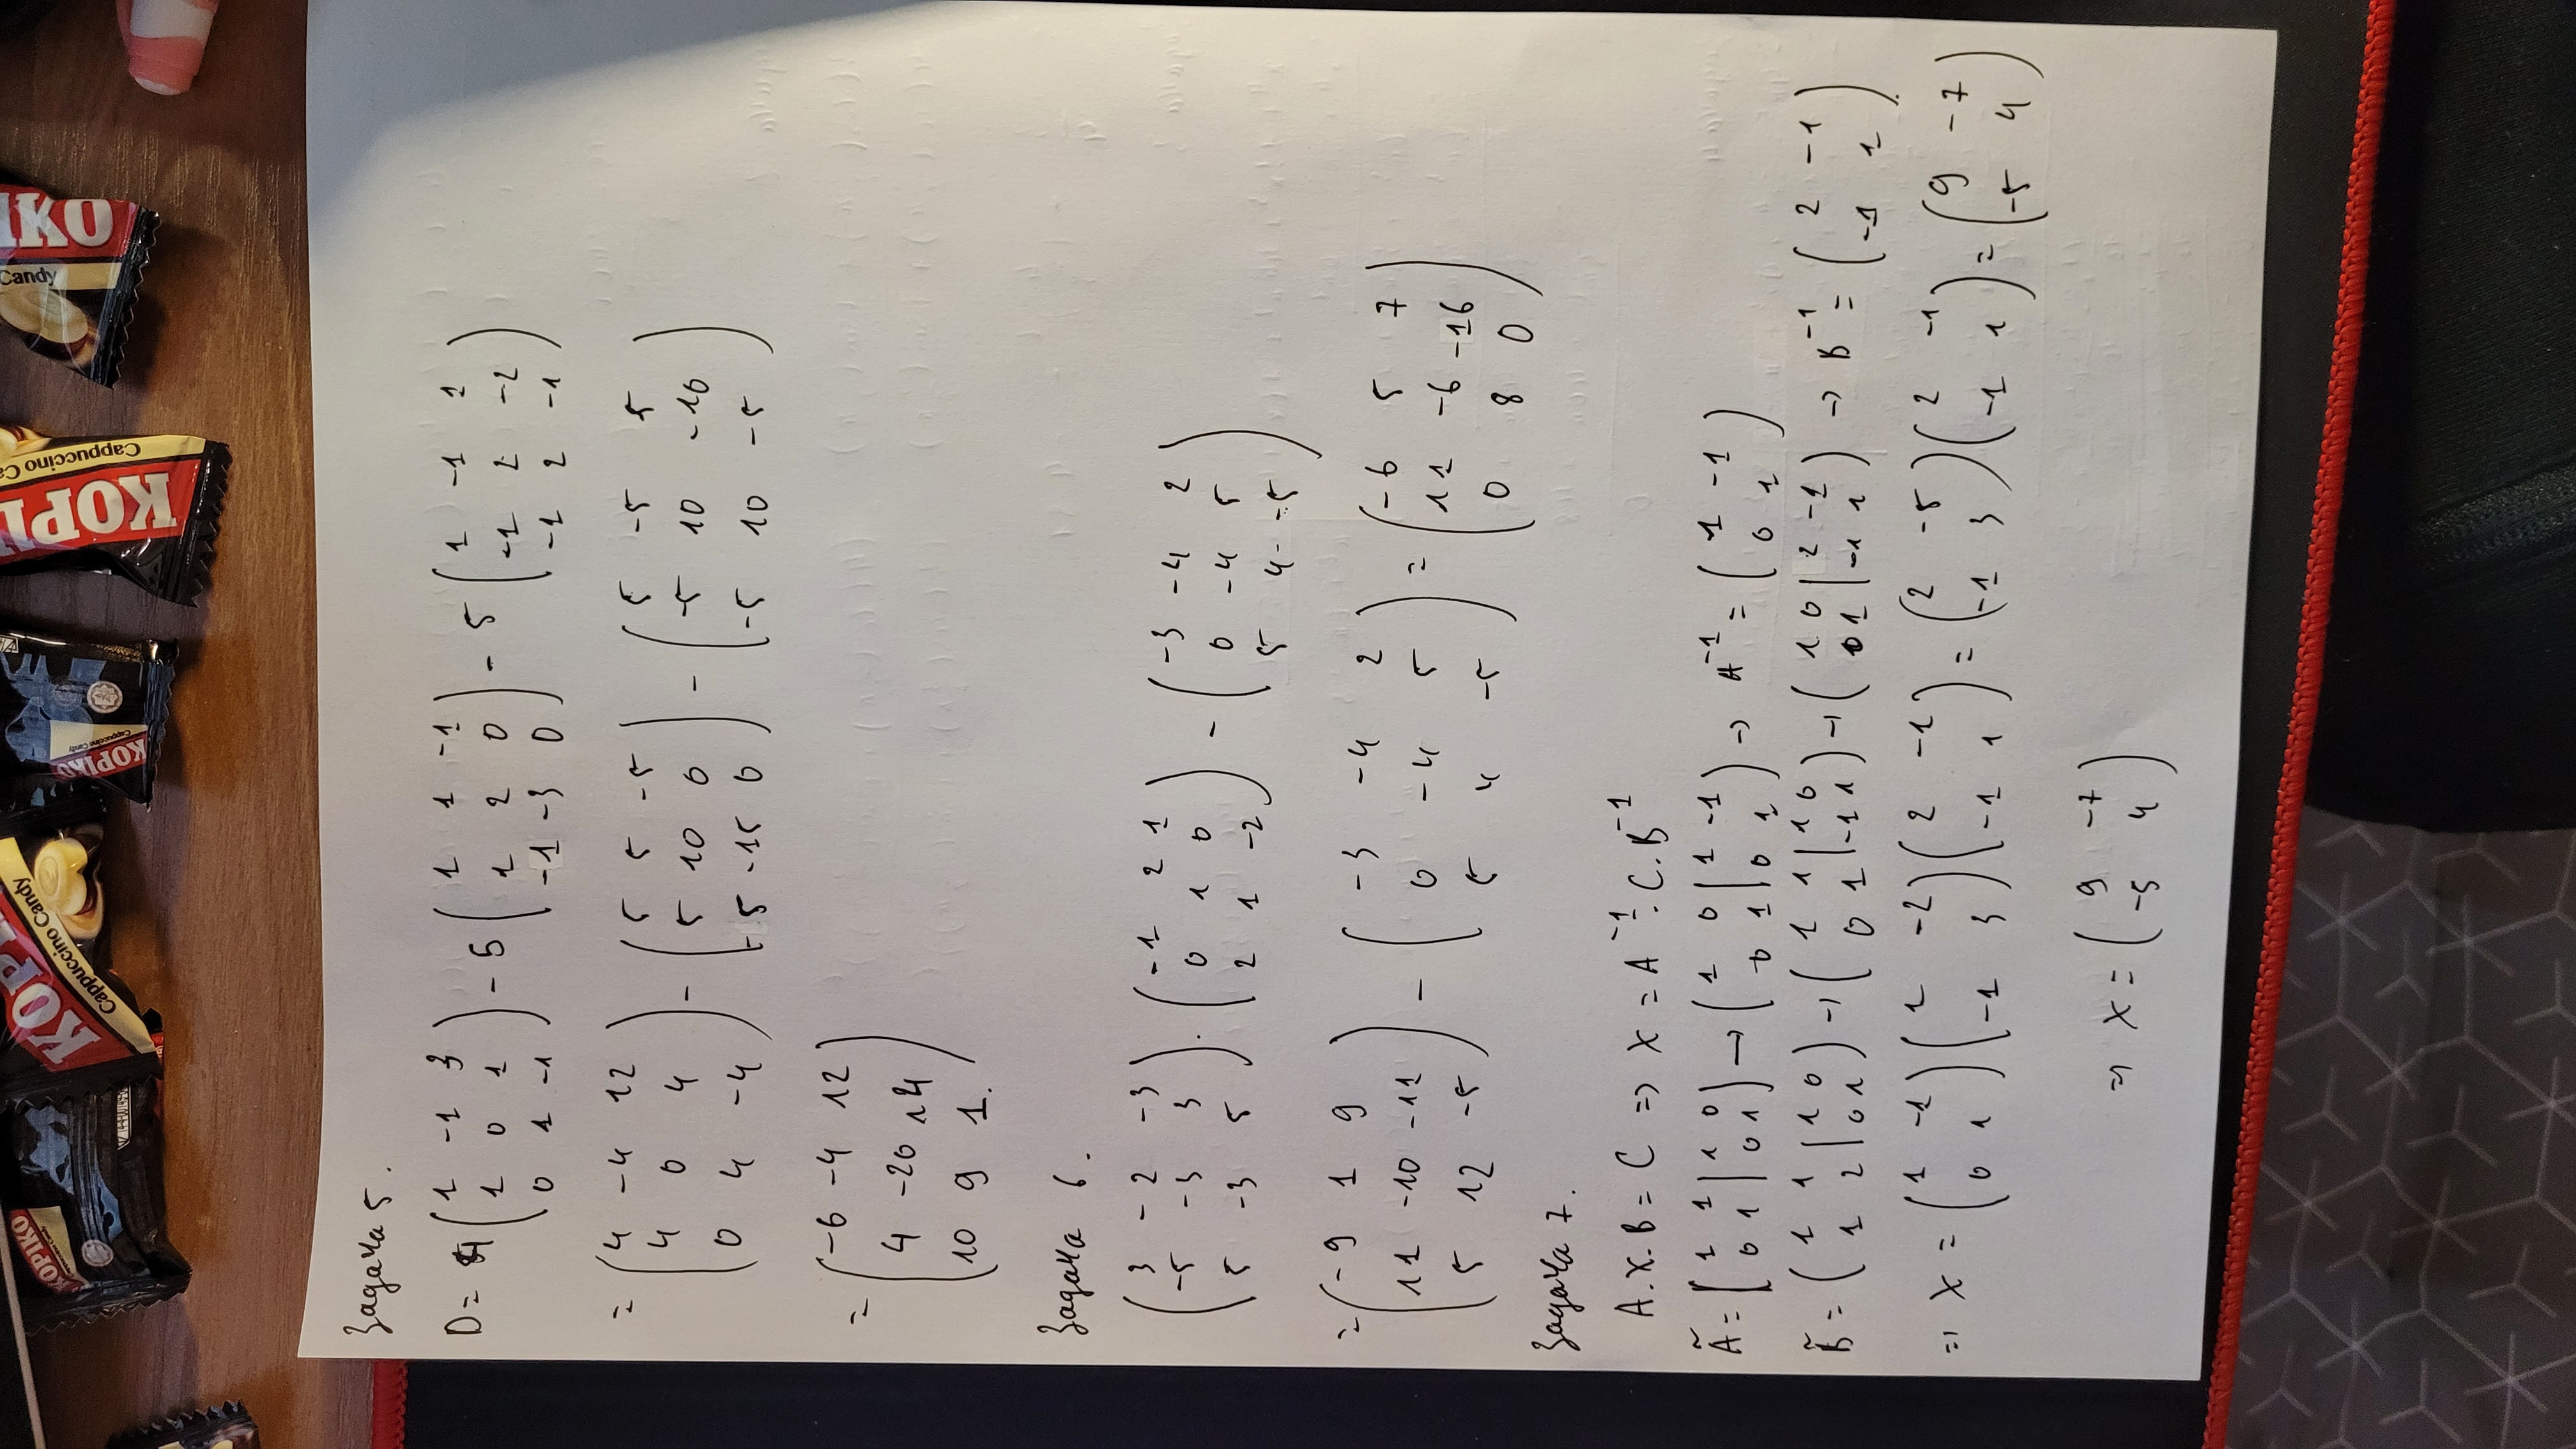 Задача 5.
D = 4 ( 1 -1 3 ; 1 0 1 ; 0 1 -1 ) - 5 ( 1 1 -1 ; 1 2 0 ; -1 -3 0 ) - 5 ( 1 -1 1 ; -1 2 -2 ; -1 2 -1 )
= ( 4 -4 12 ; 4 0 4 ; 0 4 -4 ) - ( 5 5 -5 ; 5 10 0 ; -5 -15 0 ) - ( 5 -5 5 ; -5 10 -10 ; -5 10 -5 )
= ( -6 -4 12 ; 4 -20 14 ; 10 9 1. )
Задача 6.
( 3 -2 -3 ; -5 -3 3 ; 5 -3 5 ) . ( -1 2 1 ; 0 1 0 ; 2 1 -2 ) - ( -3 -4 2 ; 0 -4 5 ; 5 4 -5 )
= ( -9 1 9 ; 11 -10 -11 ; 5 12 -5 ) - ( -3 -4 2 ; 0 -4 5 ; 5 4 -5 ) = ( -6 5 7 ; 11 -6 -16 ; 0 8 0 )
Задача 7.
A.X.B = C => X = A⁻¹.C.B⁻¹
Ã = [ 1 1 | 1 0 ; 0 1 | 0 1 ) → ( 1 0 | 1 -1 ; 0 1 | 0 1 ) → A⁻¹ = ( 1 -1 ; 0 1 )
B̃ = ( 1 1 | 1 0 ; 1 2 | 0 1 ) → ( 1 1 | 1 0 ; 0 1 | -1 1 ) → ( 1 0 | 2 -1 ; 0 1 | -1 1 ) → B⁻¹ = ( 2 -1 ; -1 1 ).
=> X = ( 1 -1 ; 0 1 ) ( 1 -2 ; -1 3 ) ( 2 -1 ; -1 1 ) = ( 2 -5 ; -1 3 ) ( 2 -1 ; -1 1 ) = ( 9 -7 ; -5 4 )
=> X = ( 9 -7 ; -5 4 )
Candy
KOPIKO
Cappuccino Candy
KOPIKO
Cappuccino Candy
KOPIKO